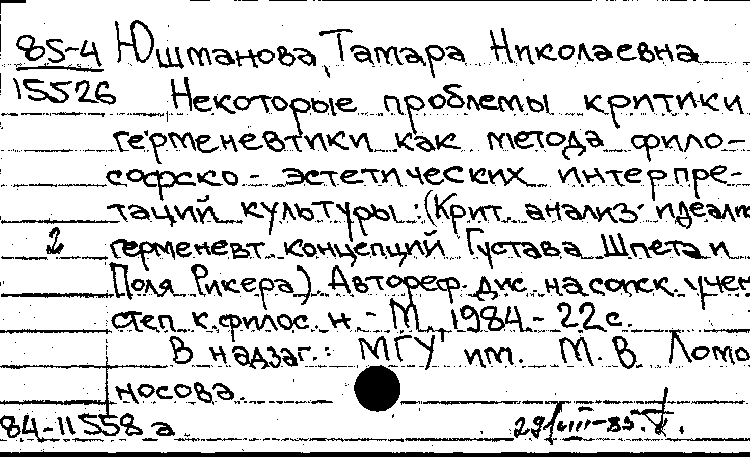 85-4 Юшманова, Тамара Николаевна
15526 Некоторые проблемы критики
герменевтики как метода фило-
софско-эстетических интерпре-
таций культуры: (Крит. анализ идеалт
2 герменевт. концепций Густава Шпета и
Поля Рикера). Автореф. дис. на соиск. учен
степ. к. филос. н. - М., 1984. - 22 с.
В надзаг.: МГУ им. М. В. Ломо
носова.
84-11558а 29/VIII-85.